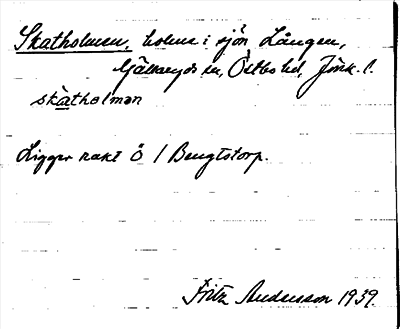 Skatholmen, holme i sjön Lången,
Gällaryds sn, Östbo hd, Jönk. l.
skatholmən
Ligger rakt ö / Bengtstorp.
Fritz Andersson 1939.